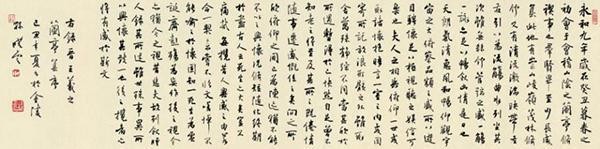 永和九年歲在癸丑暮春之
初會于會稽山陰之蘭亭脩
禊事也群賢畢至少長咸
集此地有崇山峻嶺茂林脩
竹又有清流激湍映帶左
右引以為流觴曲水列坐其
次雖無絲竹管弦之盛一觴
一詠亦足以暢敘幽情是日也
天朗氣清惠風和暢仰觀宇
宙之大俯察品類之盛所以遊
目騁懷足以極視聽之娛信可
樂也夫人之相與俯仰一世或
取諸懷抱悟言一室之內或因
寄所託放浪形骸之外雖趣
舍萬殊靜躁不同當其欣於
所遇暫得於己快然自足不
知老之將至及其所之既倦情
隨事遷感慨係之矣向之所
欣俛仰之間已為陳迹猶不能
不以之興懷況脩短隨化終期
於盡古人云死生亦大矣豈不
痛哉每攬昔人興感之由若
合一契未嘗不臨文嗟悼不
能喻之於懷固知一死生為虛
誕齊彭殤為妄作後之視今
亦猶今之視昔悲夫故列敘時
人錄其所述雖世殊事異所
以興懷其致一也後之攬者
亦將有感於斯文
右錄晉王羲之
蘭亭集序
己丑年夏於金陵
孫曉雲